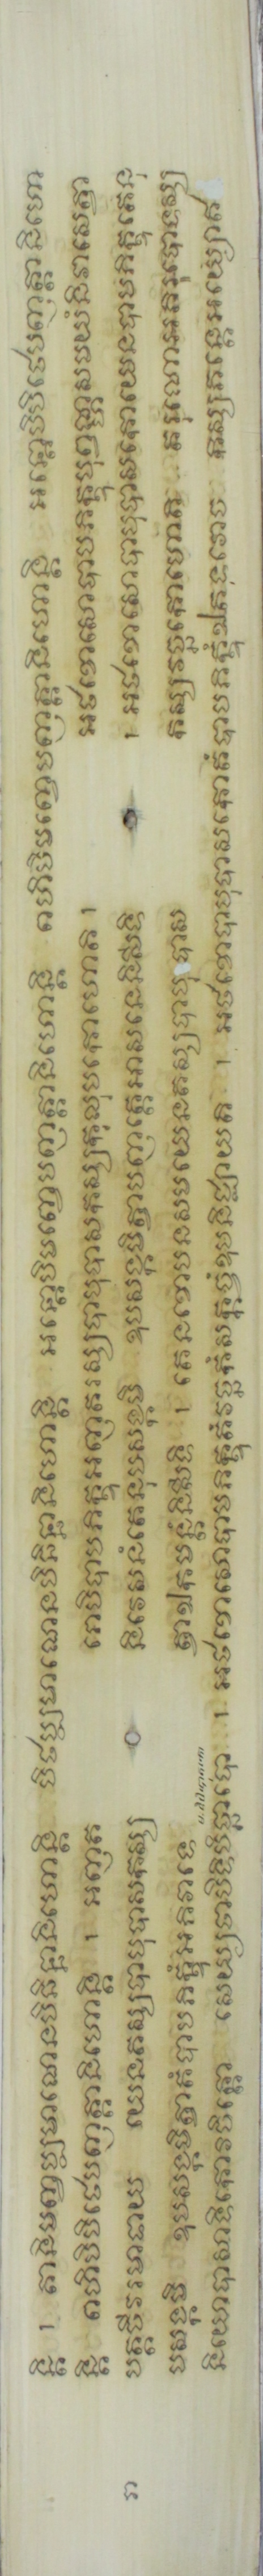 ន្តិ ។ តានិមញ្ចប្បមាណេនបិធិន្នានិហោន្តិ បិឋប្បមាណេនបិធិន្នានិហោន្តិ អន្តោបិមញ្ចេបញត្តានិហោន្តិ ពហិបិមញ្ចេបញត្តានិហោន្តិ អន្តោបិបិឋេបញត្តានិហោ
ន្តិ ពហិបិបិឋេបញត្តានិហោន្តិ ។ អញត រោបិបាបភិក្ខុអញតរស្សបាបុបាសកស្សកុលុបកោហោតិ ។ អថខោសោបាបភិក្ខុបុព្វណ្ហសមយំនិវាសេត្វា
រា បត្តចីវរមាទាយ យេនតស្សបាបុបាសកស្ស និវេសនំតេនុបសង្កមិ ឧបសង្កមិត្វាបញត្តេអាសនេនិសីទិ ។ អថខោសោបាបុបាសកោយេនបាបភិក្ខុតេនុ
បសង្កមិ ឧបសង្កមិត្វាតំបាបភិក្ខុំអភិវាទេ ត្វាឯកមន្តំនិសីទិ ។ តេនខោបនសមយេនតស្សបាបុបាស កស្សវច្ឆកោហោតិ តរុណោអភិរុបោទស្ស
និយោបាសាទិកោវិចិត្តោ សេយ្យថាបិទិបិច្ឆាបោ ។ អថខោសោបាបភិក្ខុតំវច្ឆកំសក្កច្ចំឧបនិជ្ឈាយតិ ។ អថខោបាបុបាសកោតំបាបភិក្ខុំឯតទវោច កស្សភន្តេអយ្យោតំ